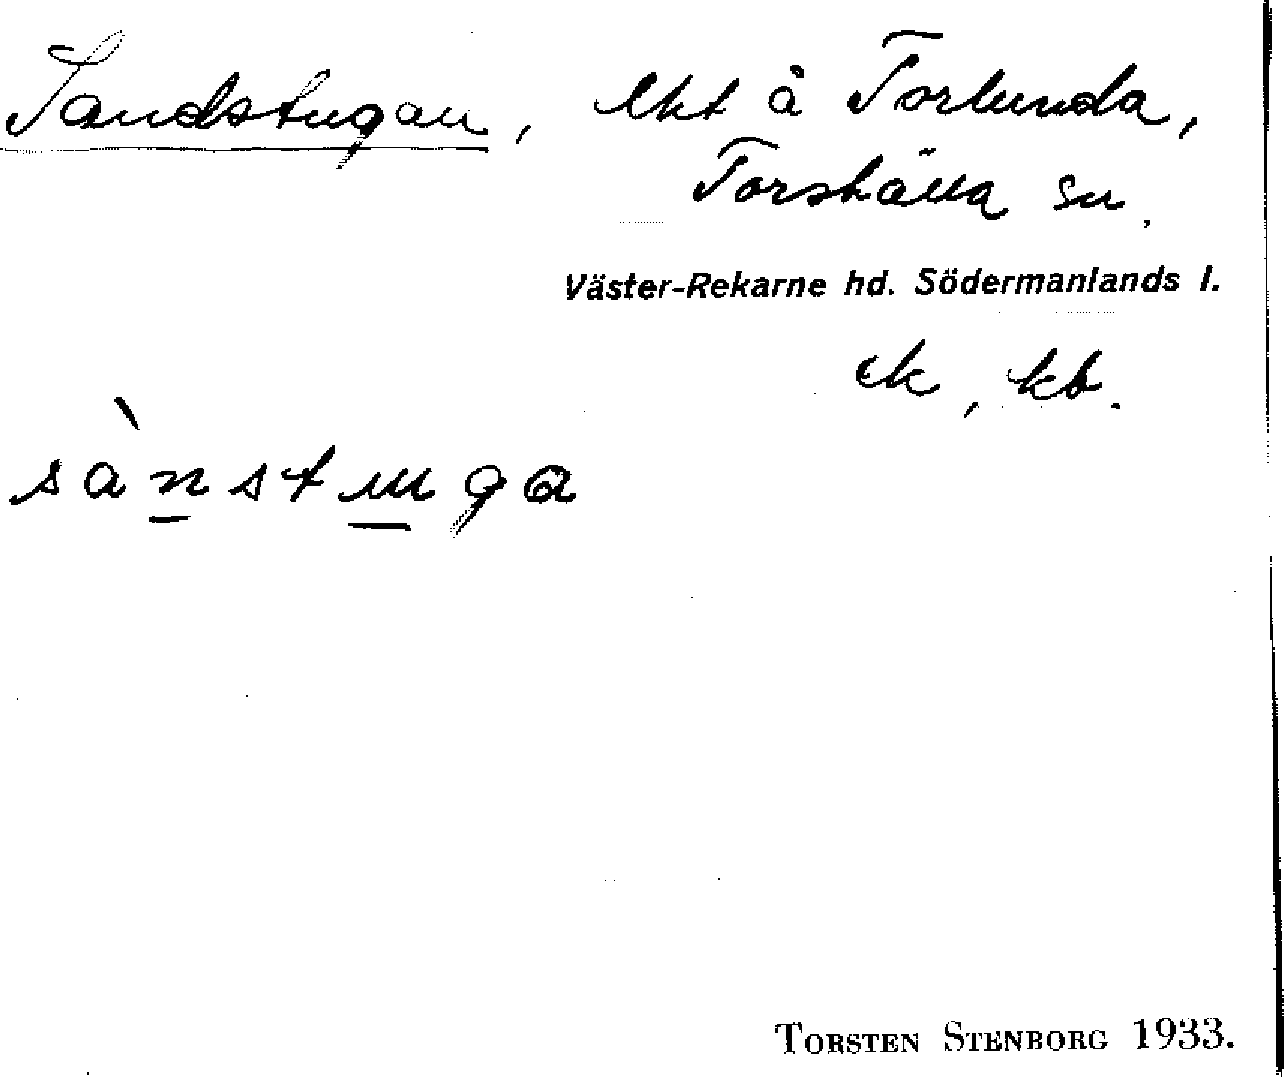 Sandstugan, lht å Torlunda,
Torshälla sn.
Väster-Rekarne hd. Södermanlands l.
ek, kb.
sànstuga
TORSTEN STENBORG 1933.